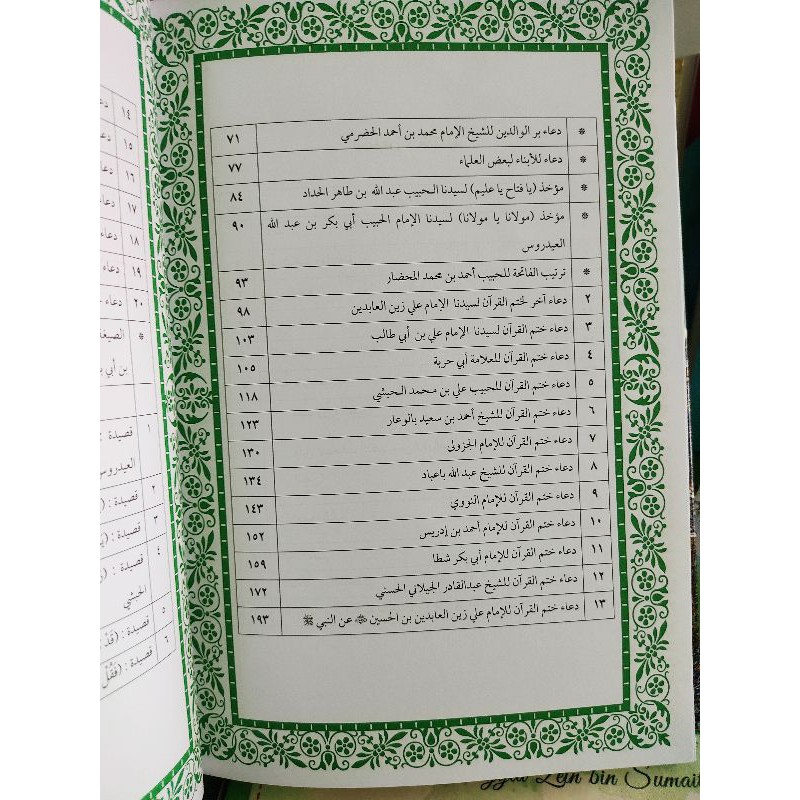 * دعاء بر الوالدين للشيخ الإمام محمد بن أحمد الحضرمي ٧١
* دعاء للأبناء لبعض العلماء ٧٧
* مؤخذ (يا فتاح يا عليم) لسيدنا الحبيب عبد الله بن طاهر الحداد ٨٤
* مؤخذ (مولانا يا مولانا) لسيدنا الإمام الحبيب أبي بكر بن عبد الله ٩٠
العيدروس
* ترتيب الفاتحة للحبيب أحمد بن محمد المحضار ٩٣
٢ دعاء آخر لختم القرآن لسيدنا الإمام علي زين العابدين ٩٨
٣ دعاء ختم القرآن لسيدنا الإمام علي بن أبي طالب ١٠٣
٤ دعاء ختم القرآن للعلامة أبي حربة ١٠٥
٥ دعاء ختم القرآن للحبيب علي بن محمد الحبشي ١١٨
٦ دعاء ختم القرآن للشيخ أحمد بن سعيد بالوعار ١٢٣
٧ دعاء ختم القرآن للإمام الجزولي ١٣٠
٨ دعاء ختم القرآن للشيخ عبد الله باعباد ١٣٤
٩ دعاء ختم القرآن للإمام النووي ١٤٣
١٠ دعاء ختم القرآن للإمام أحمد بن إدريس ١٥٢
١١ دعاء ختم القرآن للإمام أبي بكر شطا ١٥٩
١٢ دعاء ختم القرآن للشيخ عبدالقادر الجيلاني الحسني ١٧٢
١٣ دعاء ختم القرآن للإمام علي زين العابدين بن الحسين ﷺ عن النبي ﷺ ١٩٣
١٤
١٥
١٦
١٧
١٨ دعاء
١٩ دعاء
٢٠ دعاء
* الصيغة
بن أبي
١ قصيدة :
العيدروس
٢ قصيدة :
٣ قصيدة :
٤ قصيدة :
الحبشي
٥ قصيدة : (قد
٦ قصيدة : (فقل
Zein bin Sumait